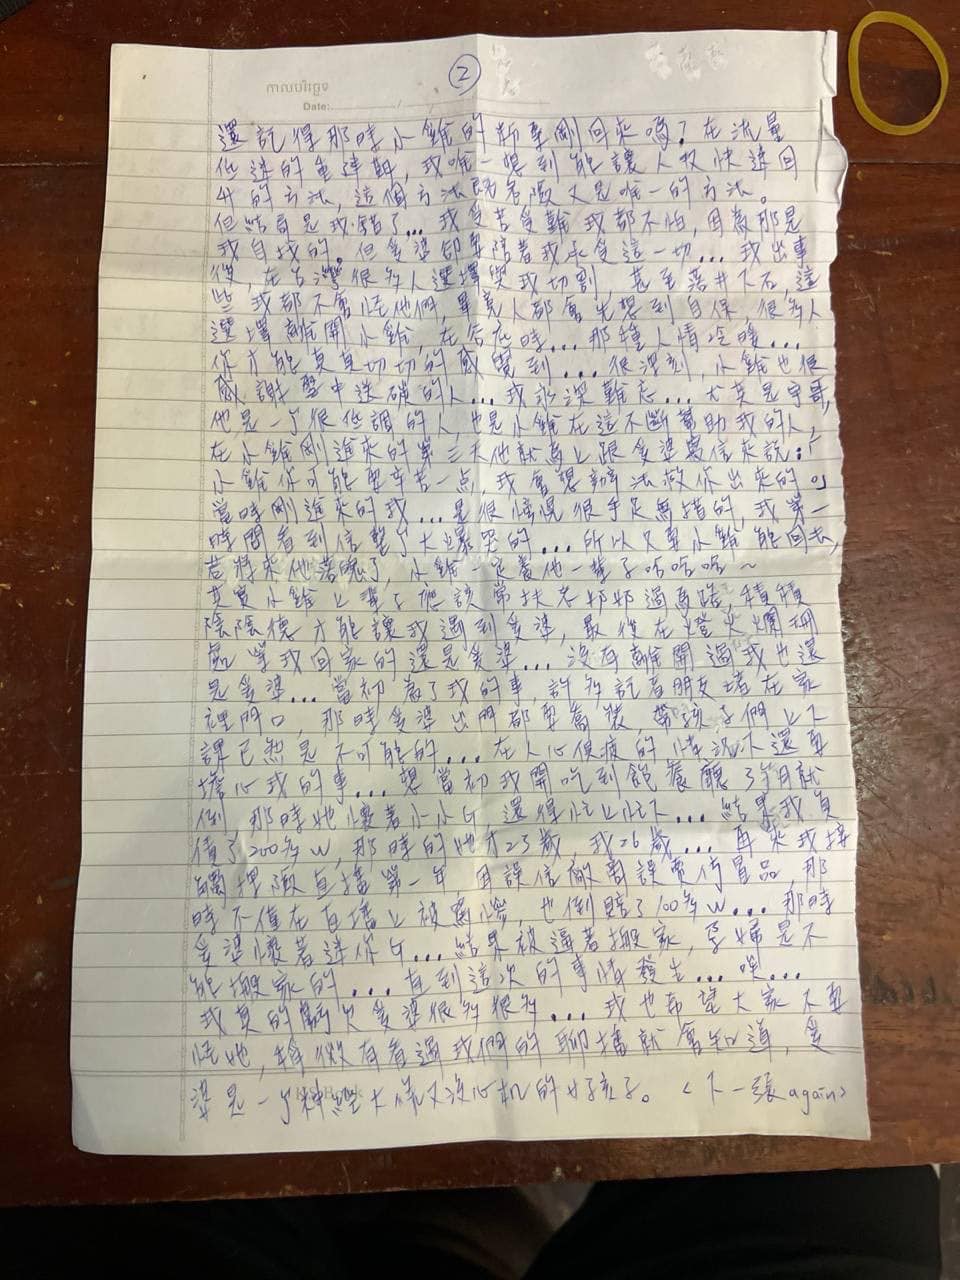 កាលបរិច្ឆេទ
Date: / /
2
還記得那時小銓的斯事剛回來嗎?在流量
低迷的重建期,我唯一想到能讓人权快速回
升的方法,這個方法既危險又是唯一的方法。
但結局是我錯了...我受苦受難我都不怕,因為那是
我自找的。但婆卻要陪著我承受這一切...我出事
後,在台灣很多人選擇與我切割,甚至落井下石,這
些我都不會怪他們,畢竟人都會先想到自保,很多人
選擇離開小銓,在谷底時...那種人情冷暖...
你才能真真切切的感覺到...很深刻,小銓也很
感謝雪中送碳的人...我永深難忘...尤其是宇哥,
他是一个很低調的人,也是小銓在這不斷幫助我的人,
在小銓剛進來的第三天他就馬上跟婆寫信來說:「
小銓你可能要辛苦一点,我會想辦法救你出來的」
當時剛進來的我...是很惶恐很手足無措的,我第一
時間看到信整个大爆哭的...所以只要小銓能回去,
若將來他落魄了,小銓一定養他一輩子哈哈哈~
其實小銓上輩子應該常扶老奶奶過馬路,積積
陰陰德才能讓我遇到婆,最後在燈火爛珊
處等我回家的還是婆...沒有離開過我也還
是婆...當初為了我的事,許多記者朋友堵在家
裡門口,那時婆出門都要喬裝,帶孩子們上下
課已然是不可能的...在人心俱疲的情況下還要
擔心我的事...想當初我開吃到飽餐廳3个月就
倒,那時她懷著小小G,還得忙上忙下...結果我負
債了200多W,那時的她才23歲,我26歲...再來我接
觸探險直播第一年,因誤信廠商誤賣仿冒品,那
時不僅在直播上被罵慘,也倒賠了100多W...那時
婆懷著迷你G...結果被逼著搬家,孕婦是不
能搬家的...直到這次的事情發生...唉...
我真的虧欠婆很多很多...我也希望大家不要
怪她,有看過我們的聊播就會知道,
是一个神經大條又沒心机的好孩子。〈下一張again〉